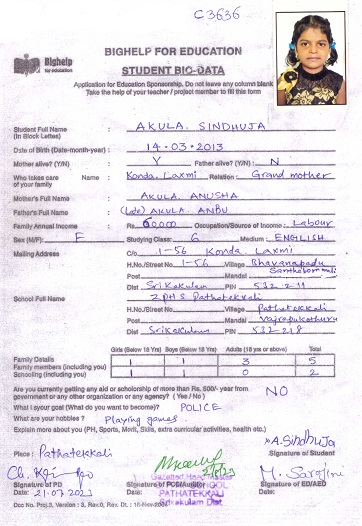 C3636
Bighelp
for education
BIGHELP FOR EDUCATION
STUDENT BIO-DATA
Application for Education Sponsorship, Do not leave any column blank
Take the help of your teacher / project member to fill this form
Student Full Name : AKULA SINDHUJA
(In Block Letter)
Date of Birth (Date-month-year) : 14-03-2013
Mother alive? (Y/N) : Y Father alive? (Y/N) : N
Who takes care Name : Konda Laxmi Relation : Grand mother
of your family
Mother's Full Name : AKULA ANUSHA
Father's Full Name : (Late) AKULA ANBU
Family Annual Income : Rs. 60000 Occupation/Source of Income : Labour
Sex (M/F): F Studying Class: 6 Medium : ENGLISH
Mailing Address C/o 1-56 Konda Laxmi
H.No./Street No. 1-56 Village Bhavanapadu
Post Mandal Santhabommali
Dist Srikakulam PIN 532-211
School Full Name : ZPHS Pathatekkali
H.No./Street No. Village Pathatekkali
Post Mandal Vajrapukothuru
Dist Srikakulam PIN 532-218
Girls (Below 18 Yrs) Boys (Below 18 Yrs) Adults (18 yrs or above) Total
Family Details
Family members (including you) 1 1 3 5
Schooling (including you) 1 1 0 2
Are you currently getting any aid or scholarship of more than Rs. 500/- year from NO
government or any other organization or any agency? (Yes / No)
What is your goal (What do you want to become)? POLICE
What are your hobbies ? Playing games
Explain more about you (PH, Sports, Merit, Skills, extra curricular activities, health etc.)
Place : Pathatekkali A.Sindhuja
Signature of Student
Signature of PD Signature of PCE/Auditor Signature of ED/AED
Date: 21-07-2021 Date: Date:
PATHATEKKALI
Srikakulam Dist
Doc No. Proj.3, Version : 3, Rev.0, Rev. Dt. :